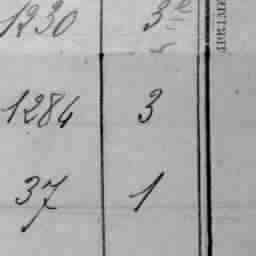 1230 3
1284 3
37 1